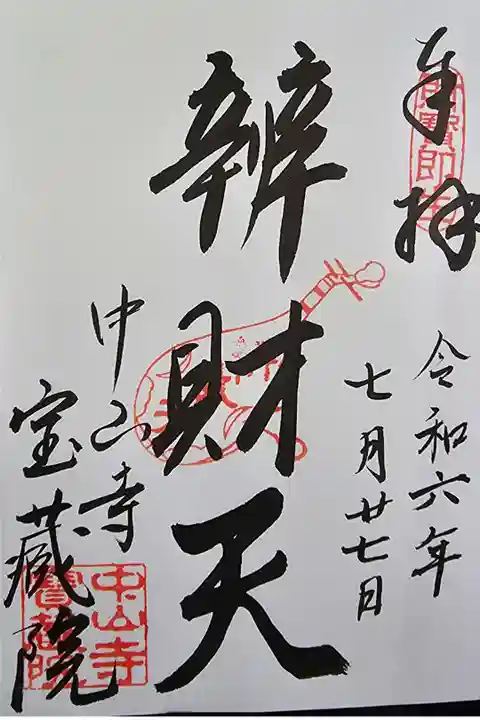 奉拝
令和六年
七月廿七日
辨財天
中山寺
宝蔵院
中山寺
寶蔵院